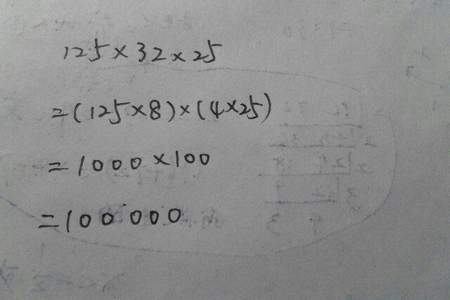 125×32×25
=(125×8)×(4×25)
=1000×100
=100000